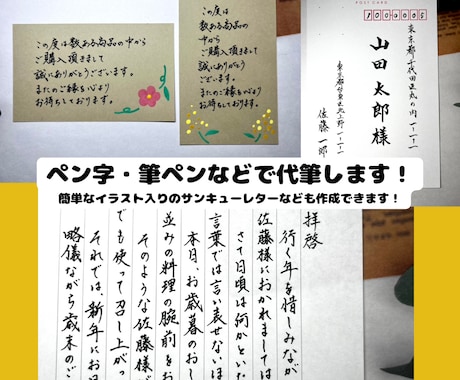 この度は
数ある商品の中から
ご購入頂きまして
誠にありがとうございます。
またのご縁を心より
お待ちしております。
この度は
数ある商品の
中から
ご購入頂きまして
誠にありがとう
ございます。
またのご縁を心より
お待ちしております。
POST CARD
東京都千代田区丸の内一-一-一
山田太郎様
東京都台東区北上野一-一-一
佐藤一郎
ペン字・筆ペンなどで代筆します!
簡単なイラスト入りのサンキューレターなども作成できます!
拝啓
行く年を惜しみなが
佐藤様におかれましては
さて日頃は何かといた
言葉では言い表せないほ
本日、お歳暮のおし
並みの料理の腕前をお
そのような佐藤様が
でも使って召し上がっ
それでは、新年にお目
略儀ながら歳末のご